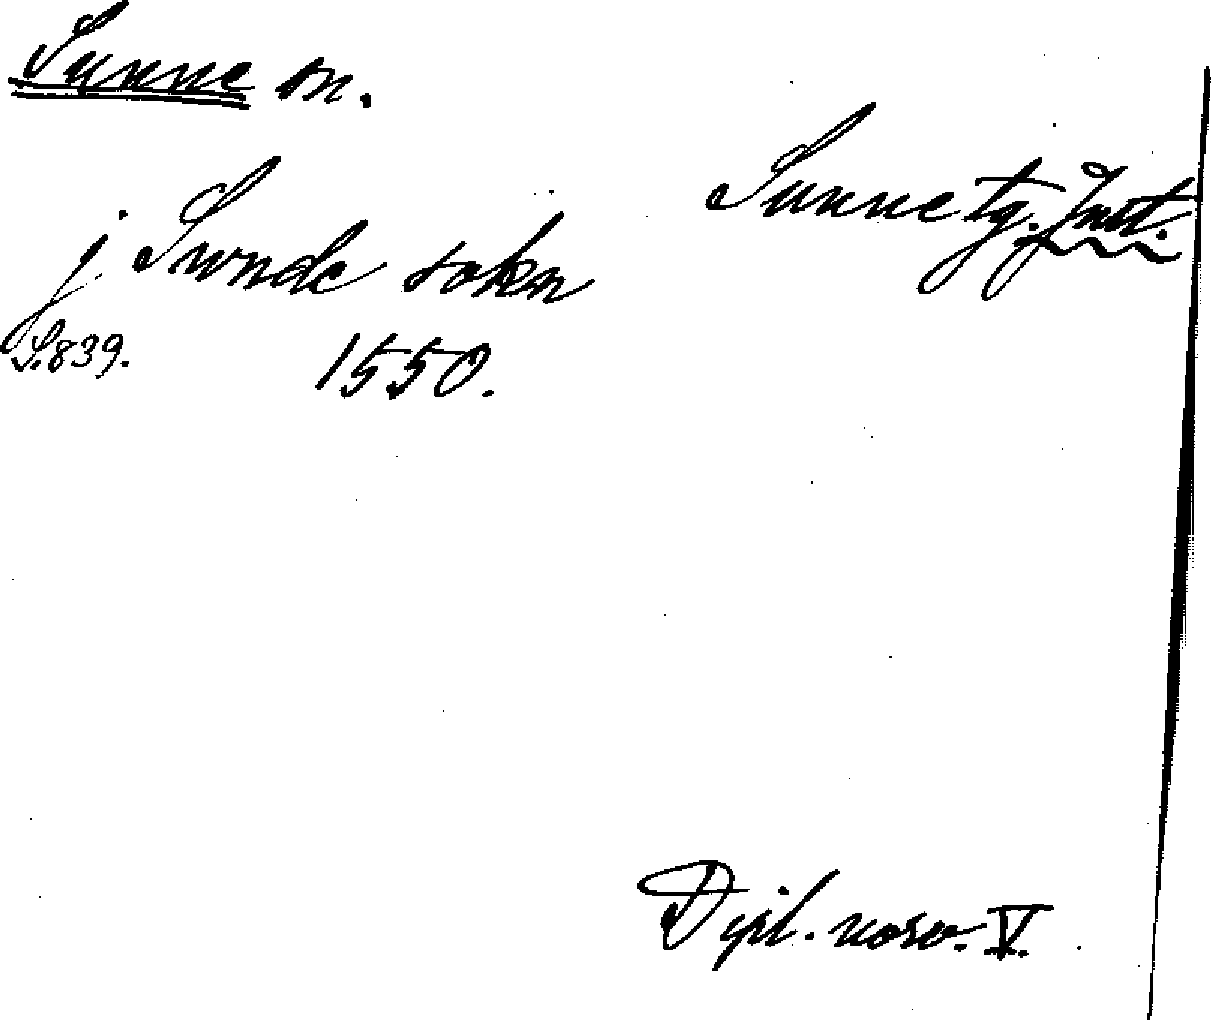 Sunne sn.
Sunne tg. Jmt.
j Swnde sokn
S. 839. 1550.
Dipl. norv. V.